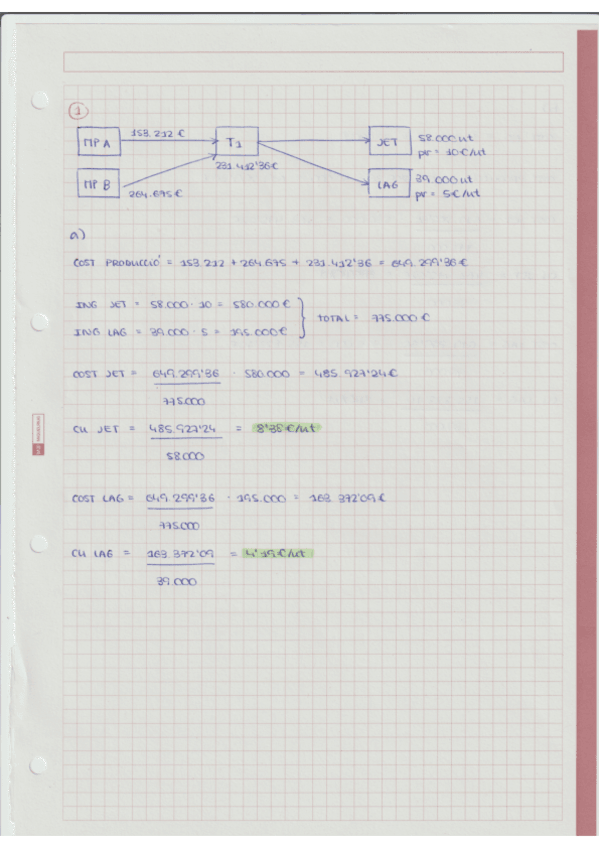 1
MP A
153.212 €
T1
JET
58.000 ut
pv = 10 €/ut
231.412'36€
MP B
264.675€
LAG
39.000 ut
pv = 5€/ut
a)
COST PRODUCCIÓ = 153.212 + 264.675 + 231.412'36 = 649.299'36 €
ING JET = 58.000 · 10 = 580.000 €
TOTAL = 775.000 €
ING LAG = 39.000 · 5 = 195.000€
COST JET = 649.299'36 · 580.000 = 485.927'24€
775.000
CU JET = 485.927'24 = 8'38 €/ut
58.000
COST LAG = 649.299'36 · 195.000 = 163.372'09 €
775.000
CU LAG = 163.372'09 = 4'19 €/ut
39.000